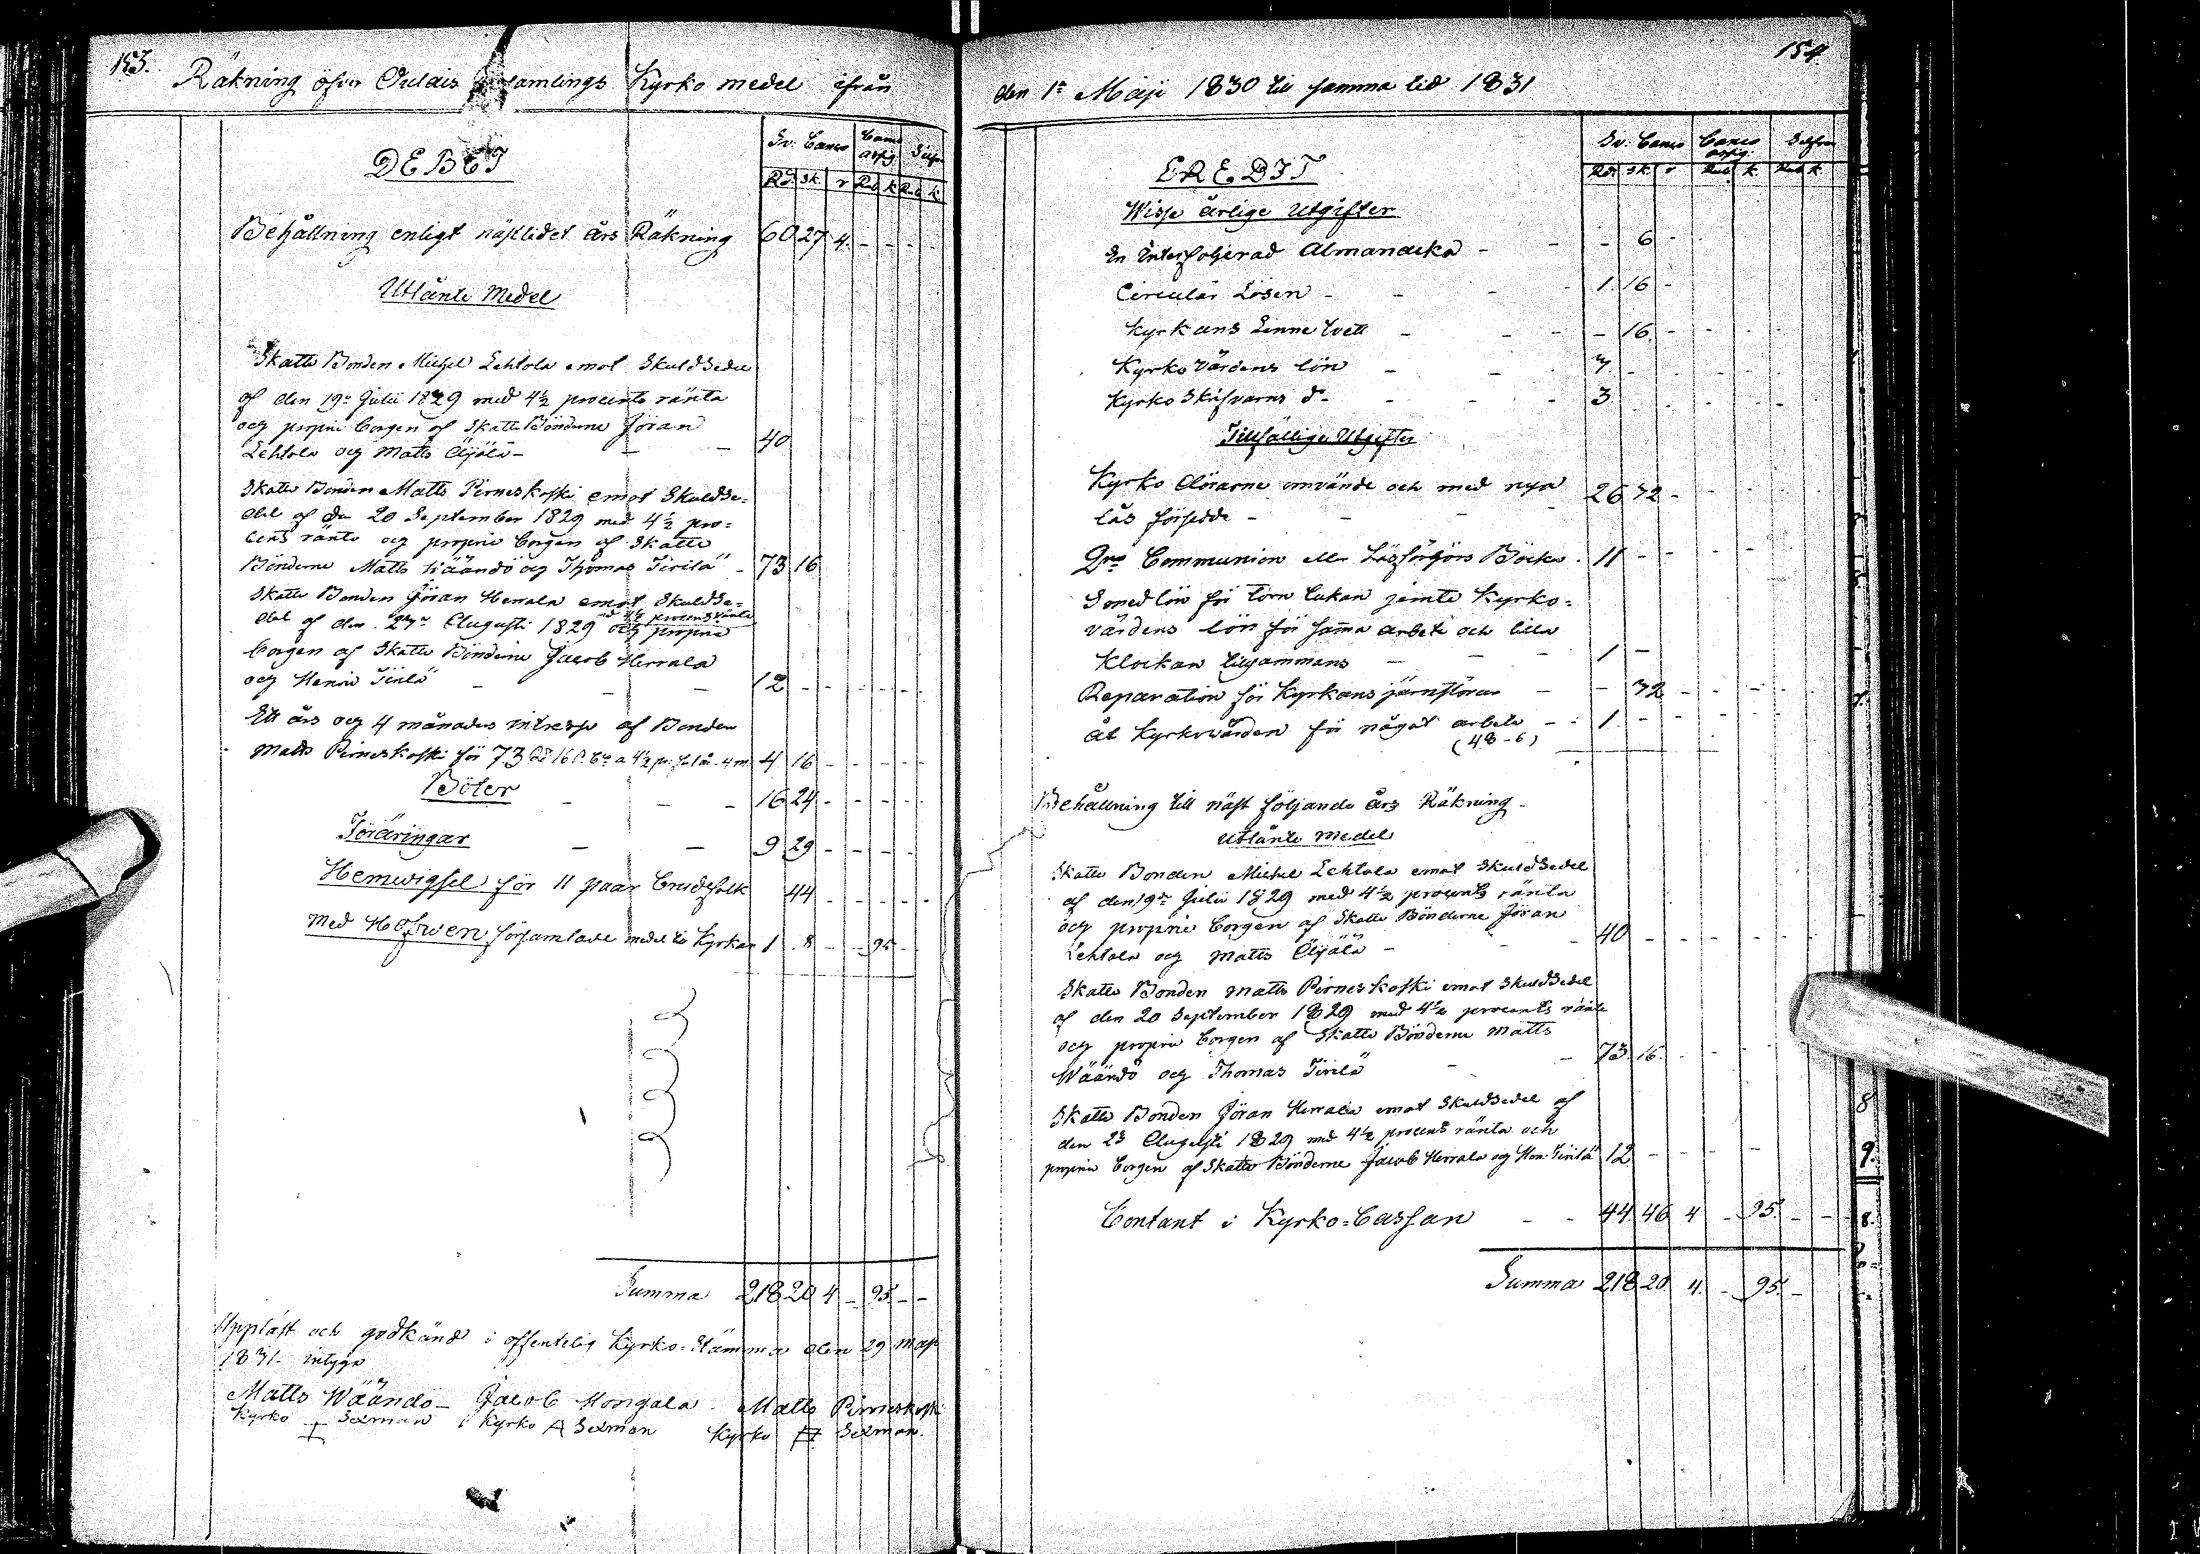 153.
Räkning öfver Pulais Församlings Kyrko medel ifrån
DEBET
Sv: Banco
Banco assig.
Silfver
Rd sk. r Rub k Rub k
Behållning enligt nästlidet års Räkning 60 27 4. - - - -
Utlånte Medel
Skatte Bonden Michel Lehtola emot Skuldsedel
af den 19de Julii 1829 med 4½ procents ränta
och proprie borgen af Skatte Bönderne Jöran
Lehtola och Matts Äijälä - - - 40
Skatte Bonden Matts Pirneskoski emot Skuldse=
del af den 20 September 1829 med 4½ pro=
cents ränta och proprie borgen af Skatte
Bönderne Matts Wäändö och Thomas Tirilä - 73 16
Skatte Bonden Jöran Herrala emot Skuldse=
del af den Augusti 1829 med 4½ procents ränta och proprie
borgen af Skatte Bönderne Jacob Herrala
och Henric Tirilä - - - 12 - - - - -
Ett års och 4 månaders intresse af Bonden
Matts Pirneskoski för 73 Rd 16 4 16 - - - - -
Böter - - - 16 24 - - - - -
Föräringar - - 9 29 - - - - -
Hemvigsel för 11 paar brudefolk 44 - - - - -
Med Håfwen församlade medel til Kyrkan 1 8 - - 95 -
Summa 218 20 4 - 95 - -
Uppläst och godkänd i offentelig Kyrko-Stämma den 29 Maji
1831 intyga
Matts Wäändö Jacob Hongala Matts Pirneskoski
Kyrko Sexman Kyrko A Sexman Kyrko Sexman.
154
den 1a Maji 1830 till samma tid 1831
CREDIT
Sv: Banco
Banco assig.
Silfver
Rdr sk. r Rub k. Rub k.
Wisse årlige Utgifter
En interfolierad Almanacka - - - 6 -
Circulär Lösen - - - - 1. 16 -
Kyrkans Linne tvätt - - - - 16. - - - -
Kyrko Värdens lön - - - 7. - - - -
Kyrko Skafvarns d:o - - - 3. - - - -
Tillfällige Utgifter
Kyrko Dörarne omvände och med nya
lås försedde - - - - 26 32 - - - -
2ne Communion eller Läsförhörs Böcker. 11 - - - -
Smed lön för torn lukan jemte Kyrko=
värdens lön för samma arbete och lilla
Klockan tillsammans - - - 1 -
Reparation för Kyrkans järnstörar - - 32 - - - -
åt Kyrkovärden för något arbete - 1. - - - -
(48-6)
Behållning till näst följande års Räkning -
Utlånte Medel
Skatte Bonden Michel Lehtola emot Skuldsedel
af den 19de Julii 1829 med 4½ procents ränta
och proprie borgen af Skatte Bönderne Jöran
Lehtola och Matts Äijälä - - - 40 - - - - -
Skatte Bonden Matts Pirneskoski emot Skuldsedel
af den 20 September 1829 med 4½ procents ränta
och proprie borgen af Skatte Bönderne Matts
Wäändö och Thomas Tirilä - - 73. 16. - - - -
Skatte Bonden Jöran Herrala emot Skuldsedel af
den 23 Augusti 1829 med 4½ procents ränta och
proprie borgen af Skatte Bönderne Jacob Herrala och Hen: Tirilä 12 - - - -
Contant i Kyrko=Cassan - - 44 46 4 - 95. - -
Summa 218 20 4. - 95. -